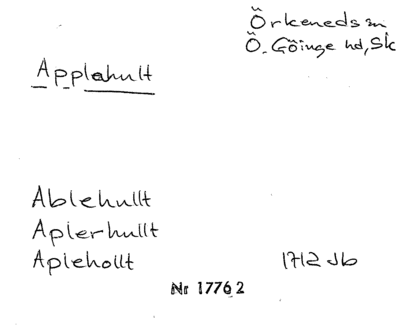 Örkeneds sn
Ö. Göinge hd, Sk
Applahult
Ablehullt
Aplerhullt
Aplehollt 1712 Jb
Nr 17762